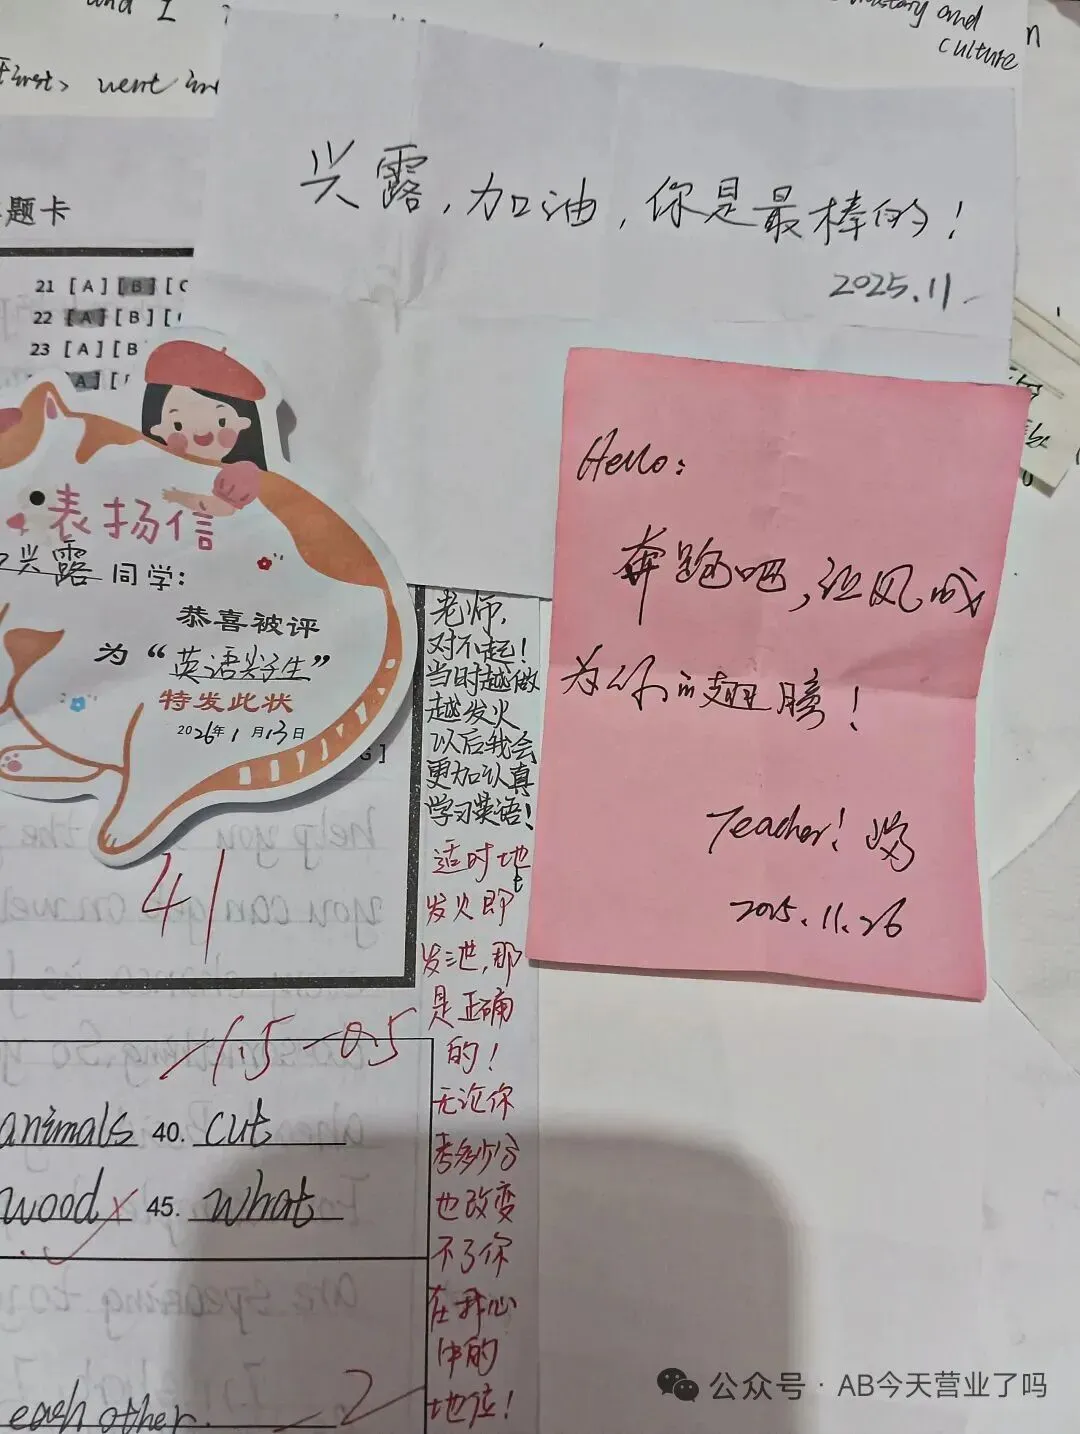 and I
history and
culture
n
First, went in
兴露,加油,你是最棒的!
2025.11.
题卡
21 [A] [B] [C
22 [A] [B] [
23 [A] [B
[A] [
表扬信
兴露 同学:
恭喜被评
为“英语尖子生”
特发此状
2026年1月13日
G]
41
老师,
对不起!
当时越做
越发火
以后我会
更加认真
学习英语!
适时地
发火即
发泄,那
是正确
的!
无论你
考多少分
也改变
不了你
在我心
中的
地位!
Hello:
奔跑吧,让风成
为你的翅膀!
Teacher!
2025.11.26
-1.5 -0.5
animals 40. cut
wood × 45. what
each other. -2
公众号 · AB今天营业了吗